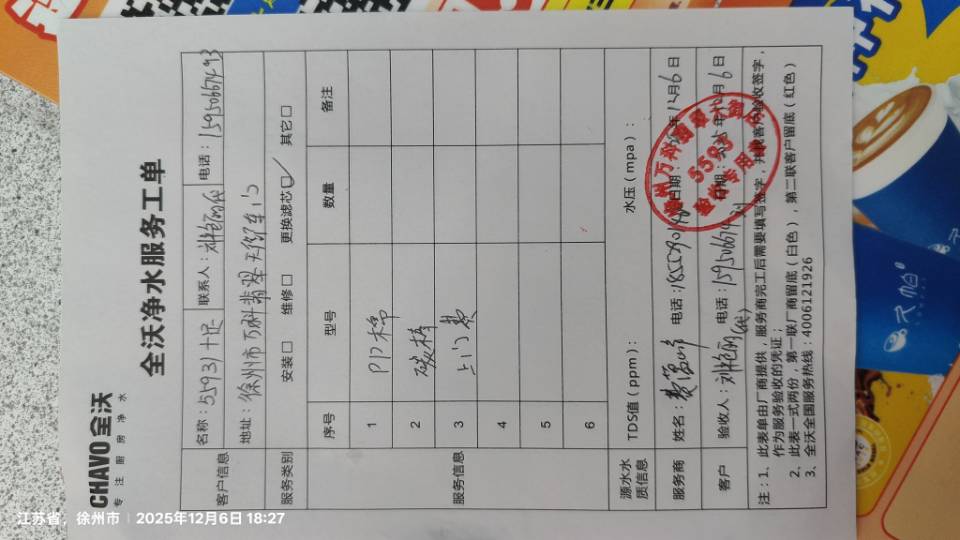 CHAVO全沃
专注厨房净水
全沃净水服务工单
客户信息 名称：55931 联系人： 电话：15950667493
地址：徐州市万科翡翠天御东门
服务类别 安装□ 维修□ 更换滤芯☑ 其它□
服务信息 序号 型号 数量 备注
1 PP棉
2 碳棒
3 上门费
4
5
6
源水水质信息 TDS值（ppm）： 水压（mpa）：
服务商 姓名： 电话： 日期： 年12月6日
客户 验收人： 电话： 日期： 月6日
注：1、此表单由厂商提供，服务商完工后需要填写签字，并经客户验收签字，
作为服务验收的凭证；
2、此表一式两份，第一联厂商留底（白色），第二联客户留底（红色）
3、全沃全国服务热线：4006121926
江苏省，徐州市 | 2025年12月6日 18:27